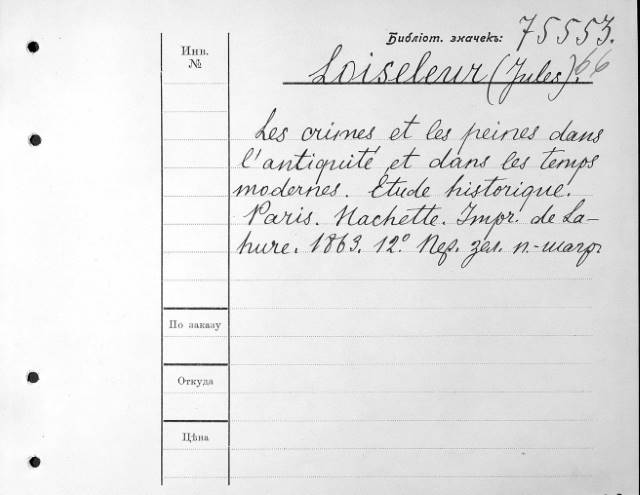 Библіот. значекъ: 75553.
66
Инв.
№
Loiseleur (Jules).
Les crimes et les peines dans
l'antiquité et dans les temps
modernes. Etude historique.
Paris. Hachette. Impr. de La-
hure. 1863. 12º Пер. зел. п.-шагр.
По заказу
Откуда
Цѣна